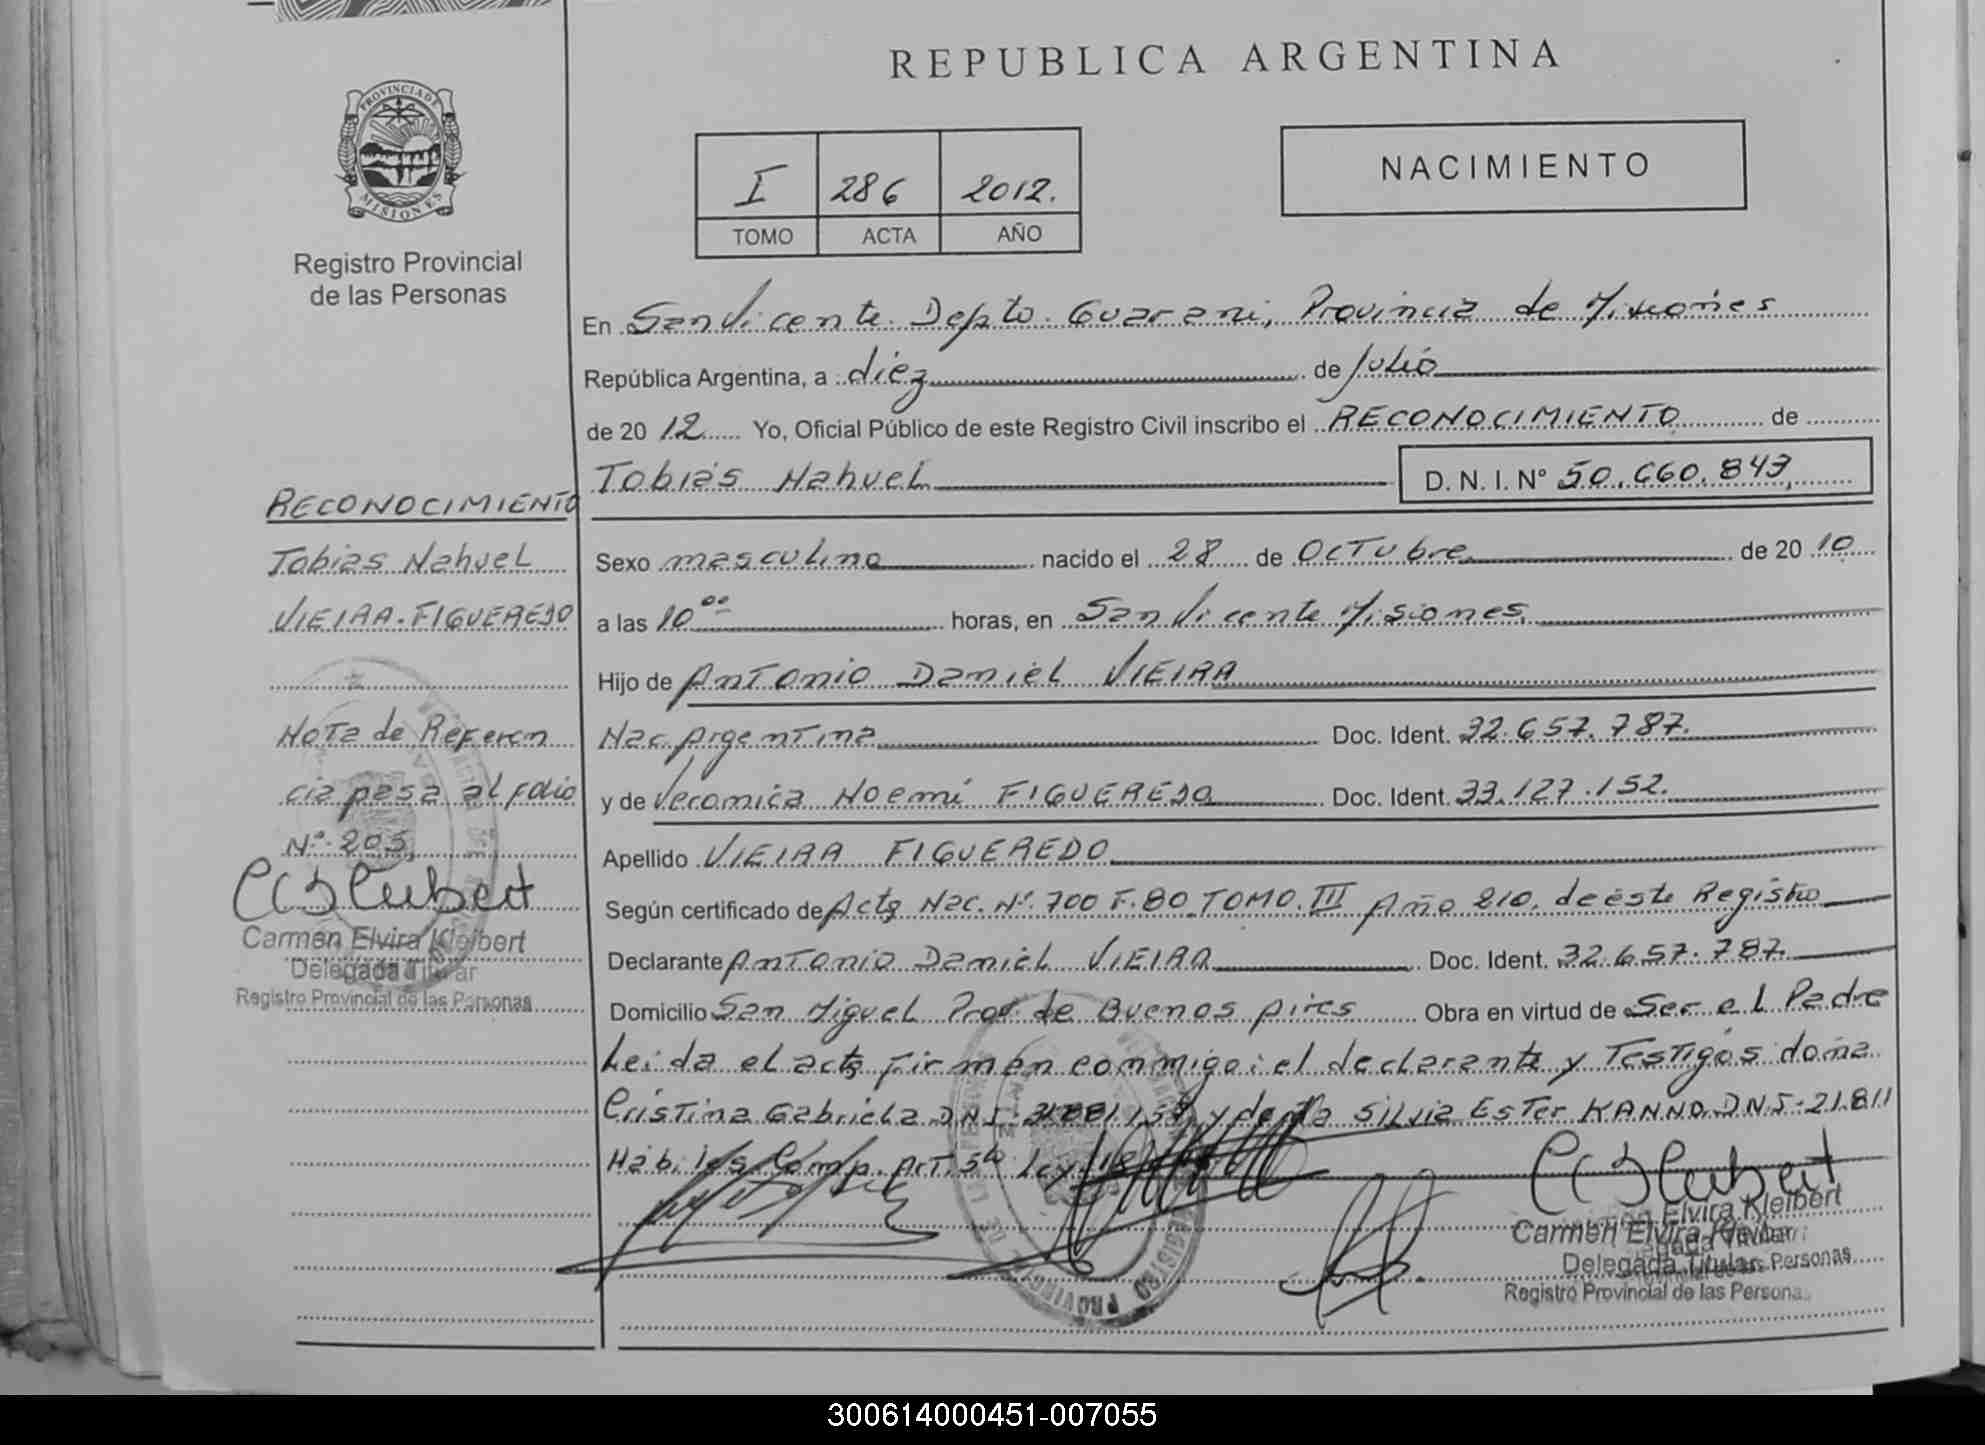 REPUBLICA ARGENTINA
PROVINCIA DE
MISIONES
Registro Provincial
de las Personas
I 286 2012.
TOMO ACTA AÑO
NACIMIENTO
En San Vicente Depto. Guarani, Provincia de Misiones
República Argentina, a diez de Julio
de 2012 Yo, Oficial Público de este Registro Civil inscribo el RECONOCIMIENTO de
Tobias Nahuel D. N. I. N° 50.660.843,
Sexo masculino nacido el 28 de Octubre de 2010
a las 10°° horas, en San Vicente Misiones,
Hijo de Antonio Daniel VIEIRA
Nac. Argentina Doc. Ident. 32.657.787.
y de Veronica Noemi FIGUEREDO Doc. Ident. 33.127.152.
Apellido VIEIRA FIGUEREDO
Según certificado de Acta Nac. N°. 700 F. 80 TOMO. III Año 210, de este Registro
Declarante Antonio Daniel VIEIRA Doc. Ident. 32.657.787.
Domicilio San Miguel Prov. de Buenos Aires Obra en virtud de Ser el Padre
Leida el acta Firman conmigo: el declarante y Testigos doña
Cristina Gabriela DNI. y Silvia Ester KANNO DNI-21.811
Hábiles Comp. Art. 5to ley
Carmen Elvira Kleibert
Delegada Titular
Registro Provincial de las Persona
RECONOCIMIENTO
Tobias Nahuel
VIEIRA-FIGUEREDO
Nota de Referen
cia pasa al folio
N°. 205,
Carmen Elvira Kleibert
Delegada Titular
Registro Provincial de las Personas
300614000451-007055